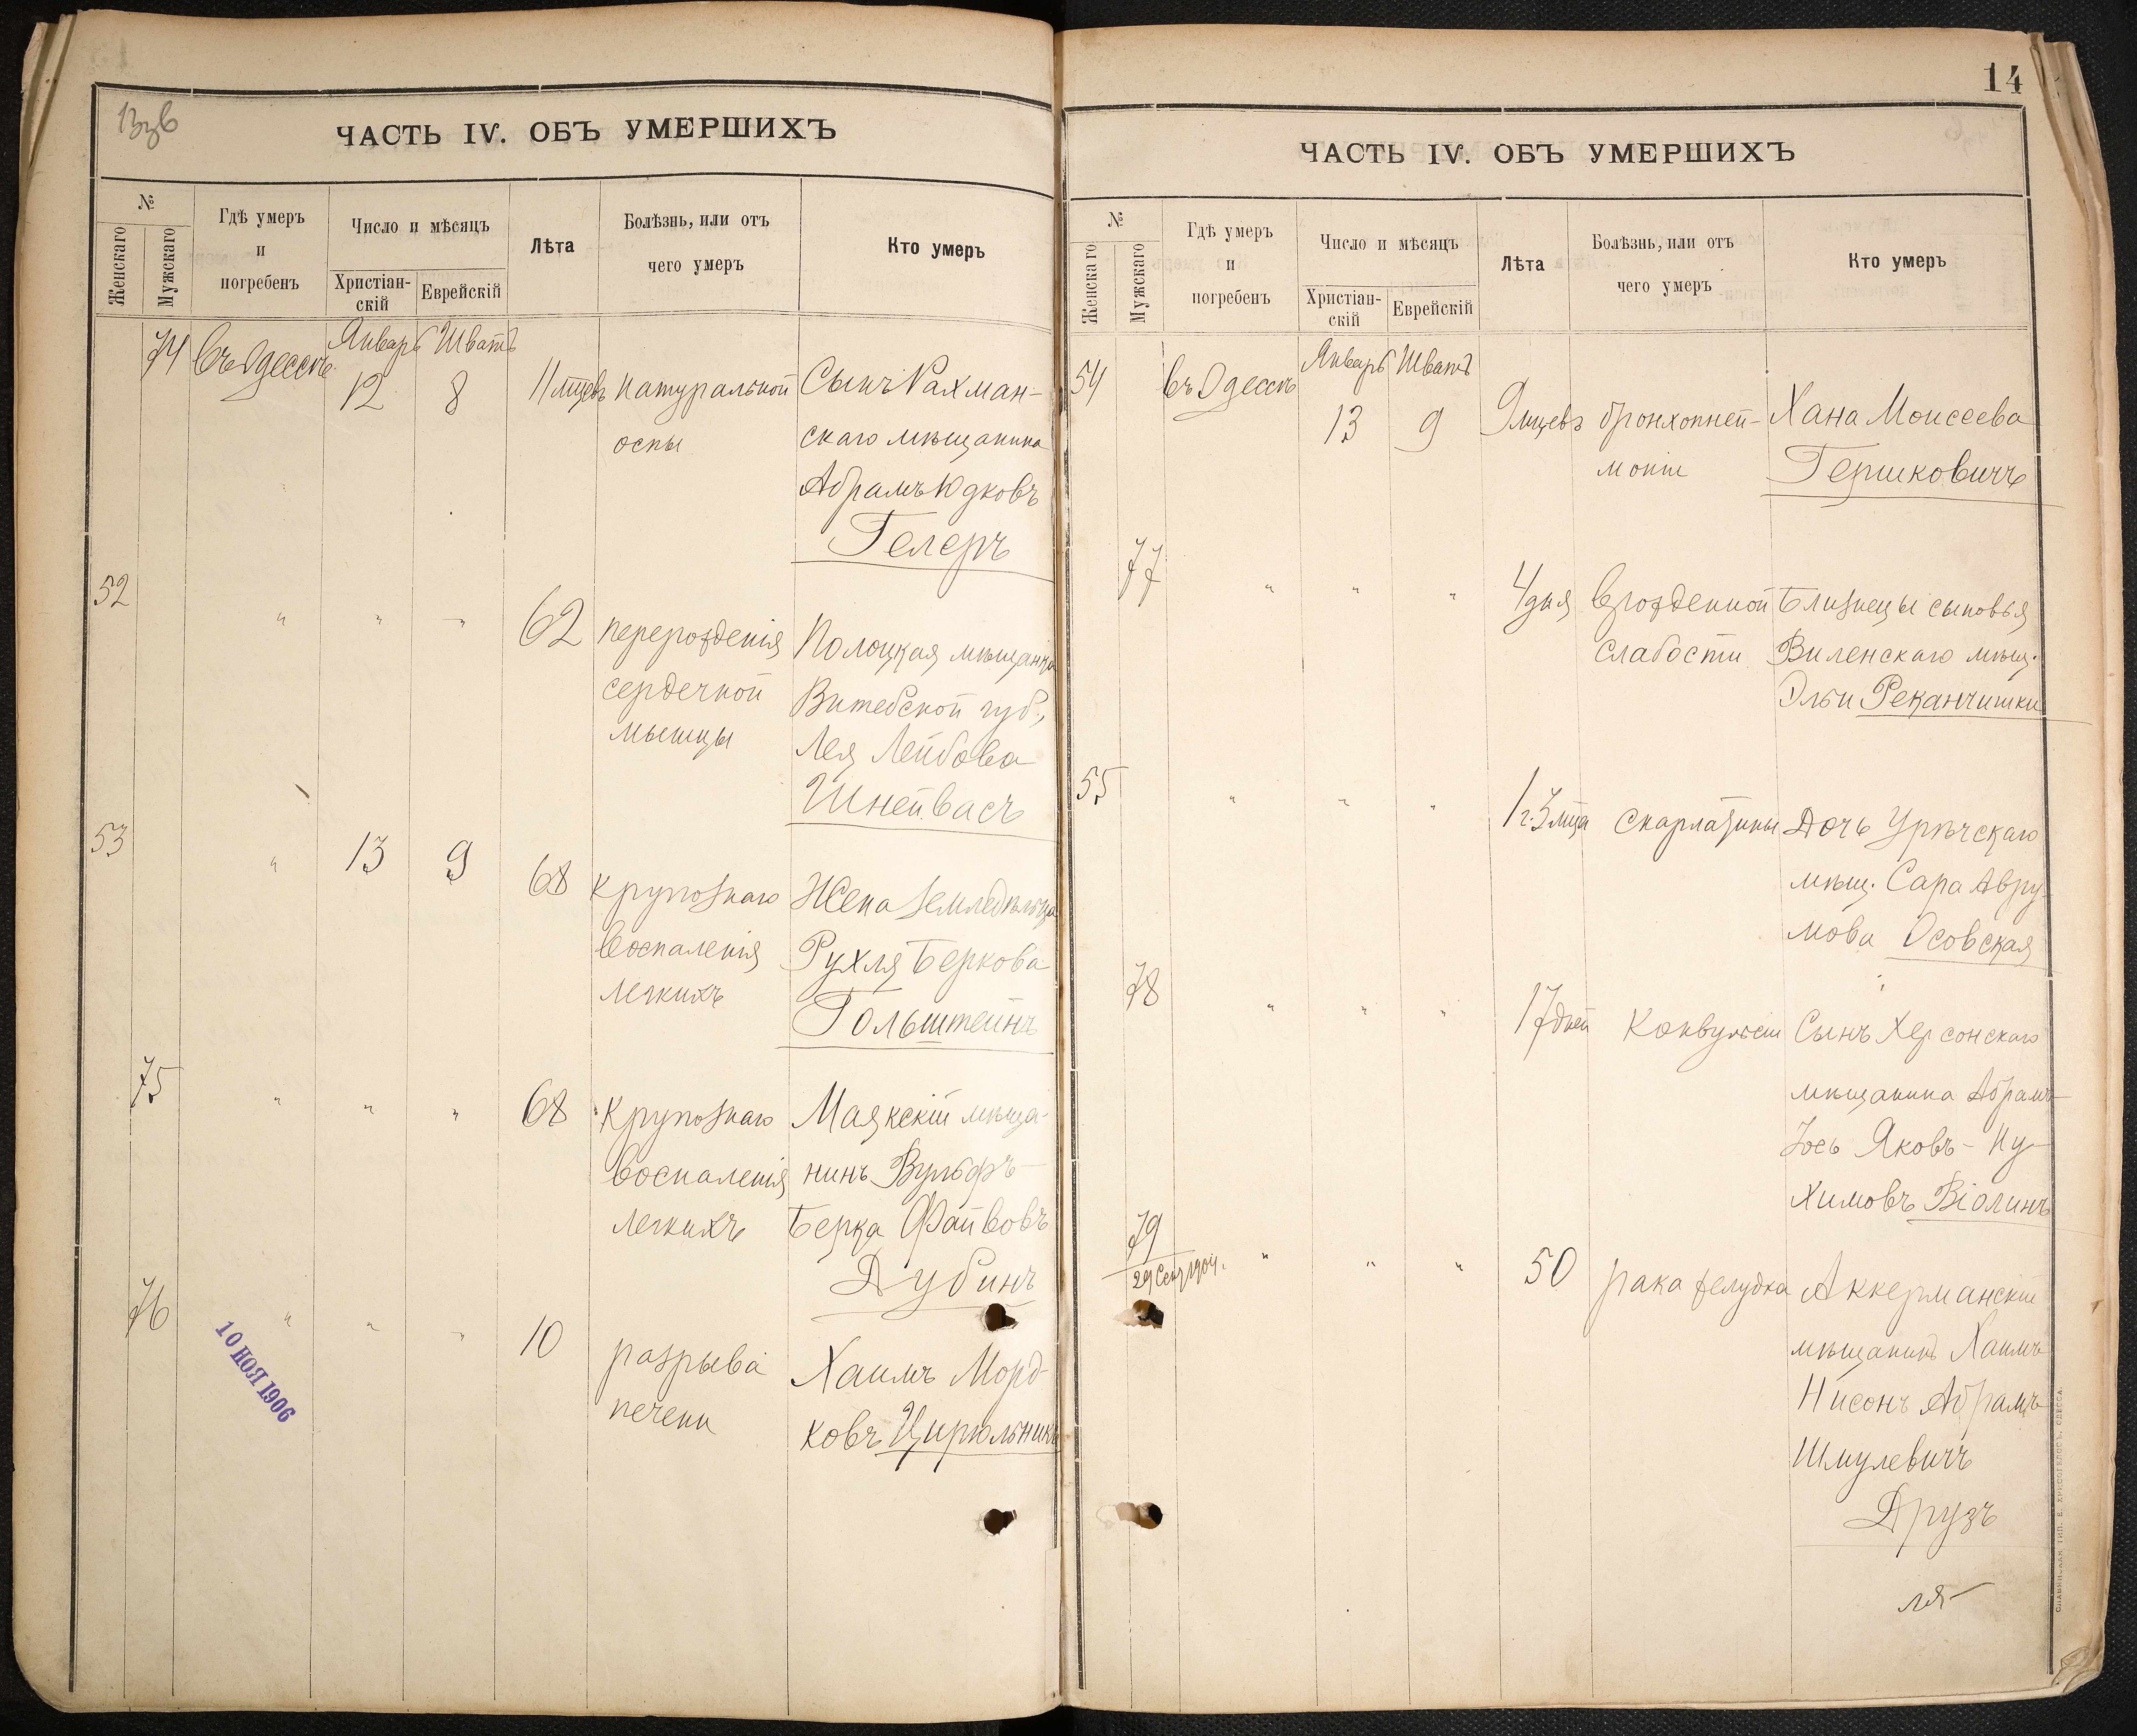 13зв
ЧАСТЬ IV. ОБЪ УМЕРШИХЪ
№
Женскаго
Мужскаго
Гдѣ умеръ
и
погребенъ
Число и мѣсяцъ
Христіан-
скій
Еврейскій
Лѣта
Болѣзнь, или отъ
чего умеръ
Кто умеръ
Январь Шватъ
74 Въ Одессѣ 12 8 11 мцевъ натуральной Сынъ Рахман-
оспы скаго мѣщанина
Абрамъ Юдковъ
Гелеръ
52 " " " 62 перерожденія Полоцкая мѣщанка
сердечной Витебской губ.,
мышцы Лея Лейбова
Шнейвасъ
53 " 13 9 68 крупознаго Жена земледѣльца
воспаленія Рухля Беркова
легкихъ Гольштейнъ
75 " " " 68 крупознаго Маякскій мѣща-
воспаленія нинъ Вульфъ-
легкихъ Берка Файвовъ
Дубинъ
76 " " " 10 разрыва Хаимъ Морд-
печени ковъ Цирюльникъ
10 НОЯ 1906
14
ЧАСТЬ IV. ОБЪ УМЕРШИХЪ
№
Женскаго
Мужскаго
Гдѣ умеръ
и
погребенъ
Число и мѣсяцъ
Христіан-
скій
Еврейскій
Лѣта
Болѣзнь, или отъ
чего умеръ
Кто умеръ
Январь Шватъ
54 въ Одессѣ 13 9 9 мцевъ бронхопней- Хана Моисеева
моніи Гершковичъ
77 " " " 4 дня врожденной Близнецы сыновья
слабости Виленскаго мѣщ.
Эльи Реканчишки
55 " " " 1 г. 3 мца скарлатины Дочь Урѣчскаго
мѣщ. Сара Авру-
мова Осовская
78 " " " 17 дней Конвульсіи Сынъ Херсонскаго
мѣщанина Абрамъ-
Іось Яковъ-Ну-
химовъ Віолинъ
79 " " " 50 рака желудка Аккерманскій
29 Сент 1904.
мѣщанинъ Хаимъ
Нисонъ Абрамъ
Шмулевичъ
Друзъ
СЛАВЯНСКАЯ ТИП. Е. ХРИСОГЕЛОСЪ, ОДЕССА.